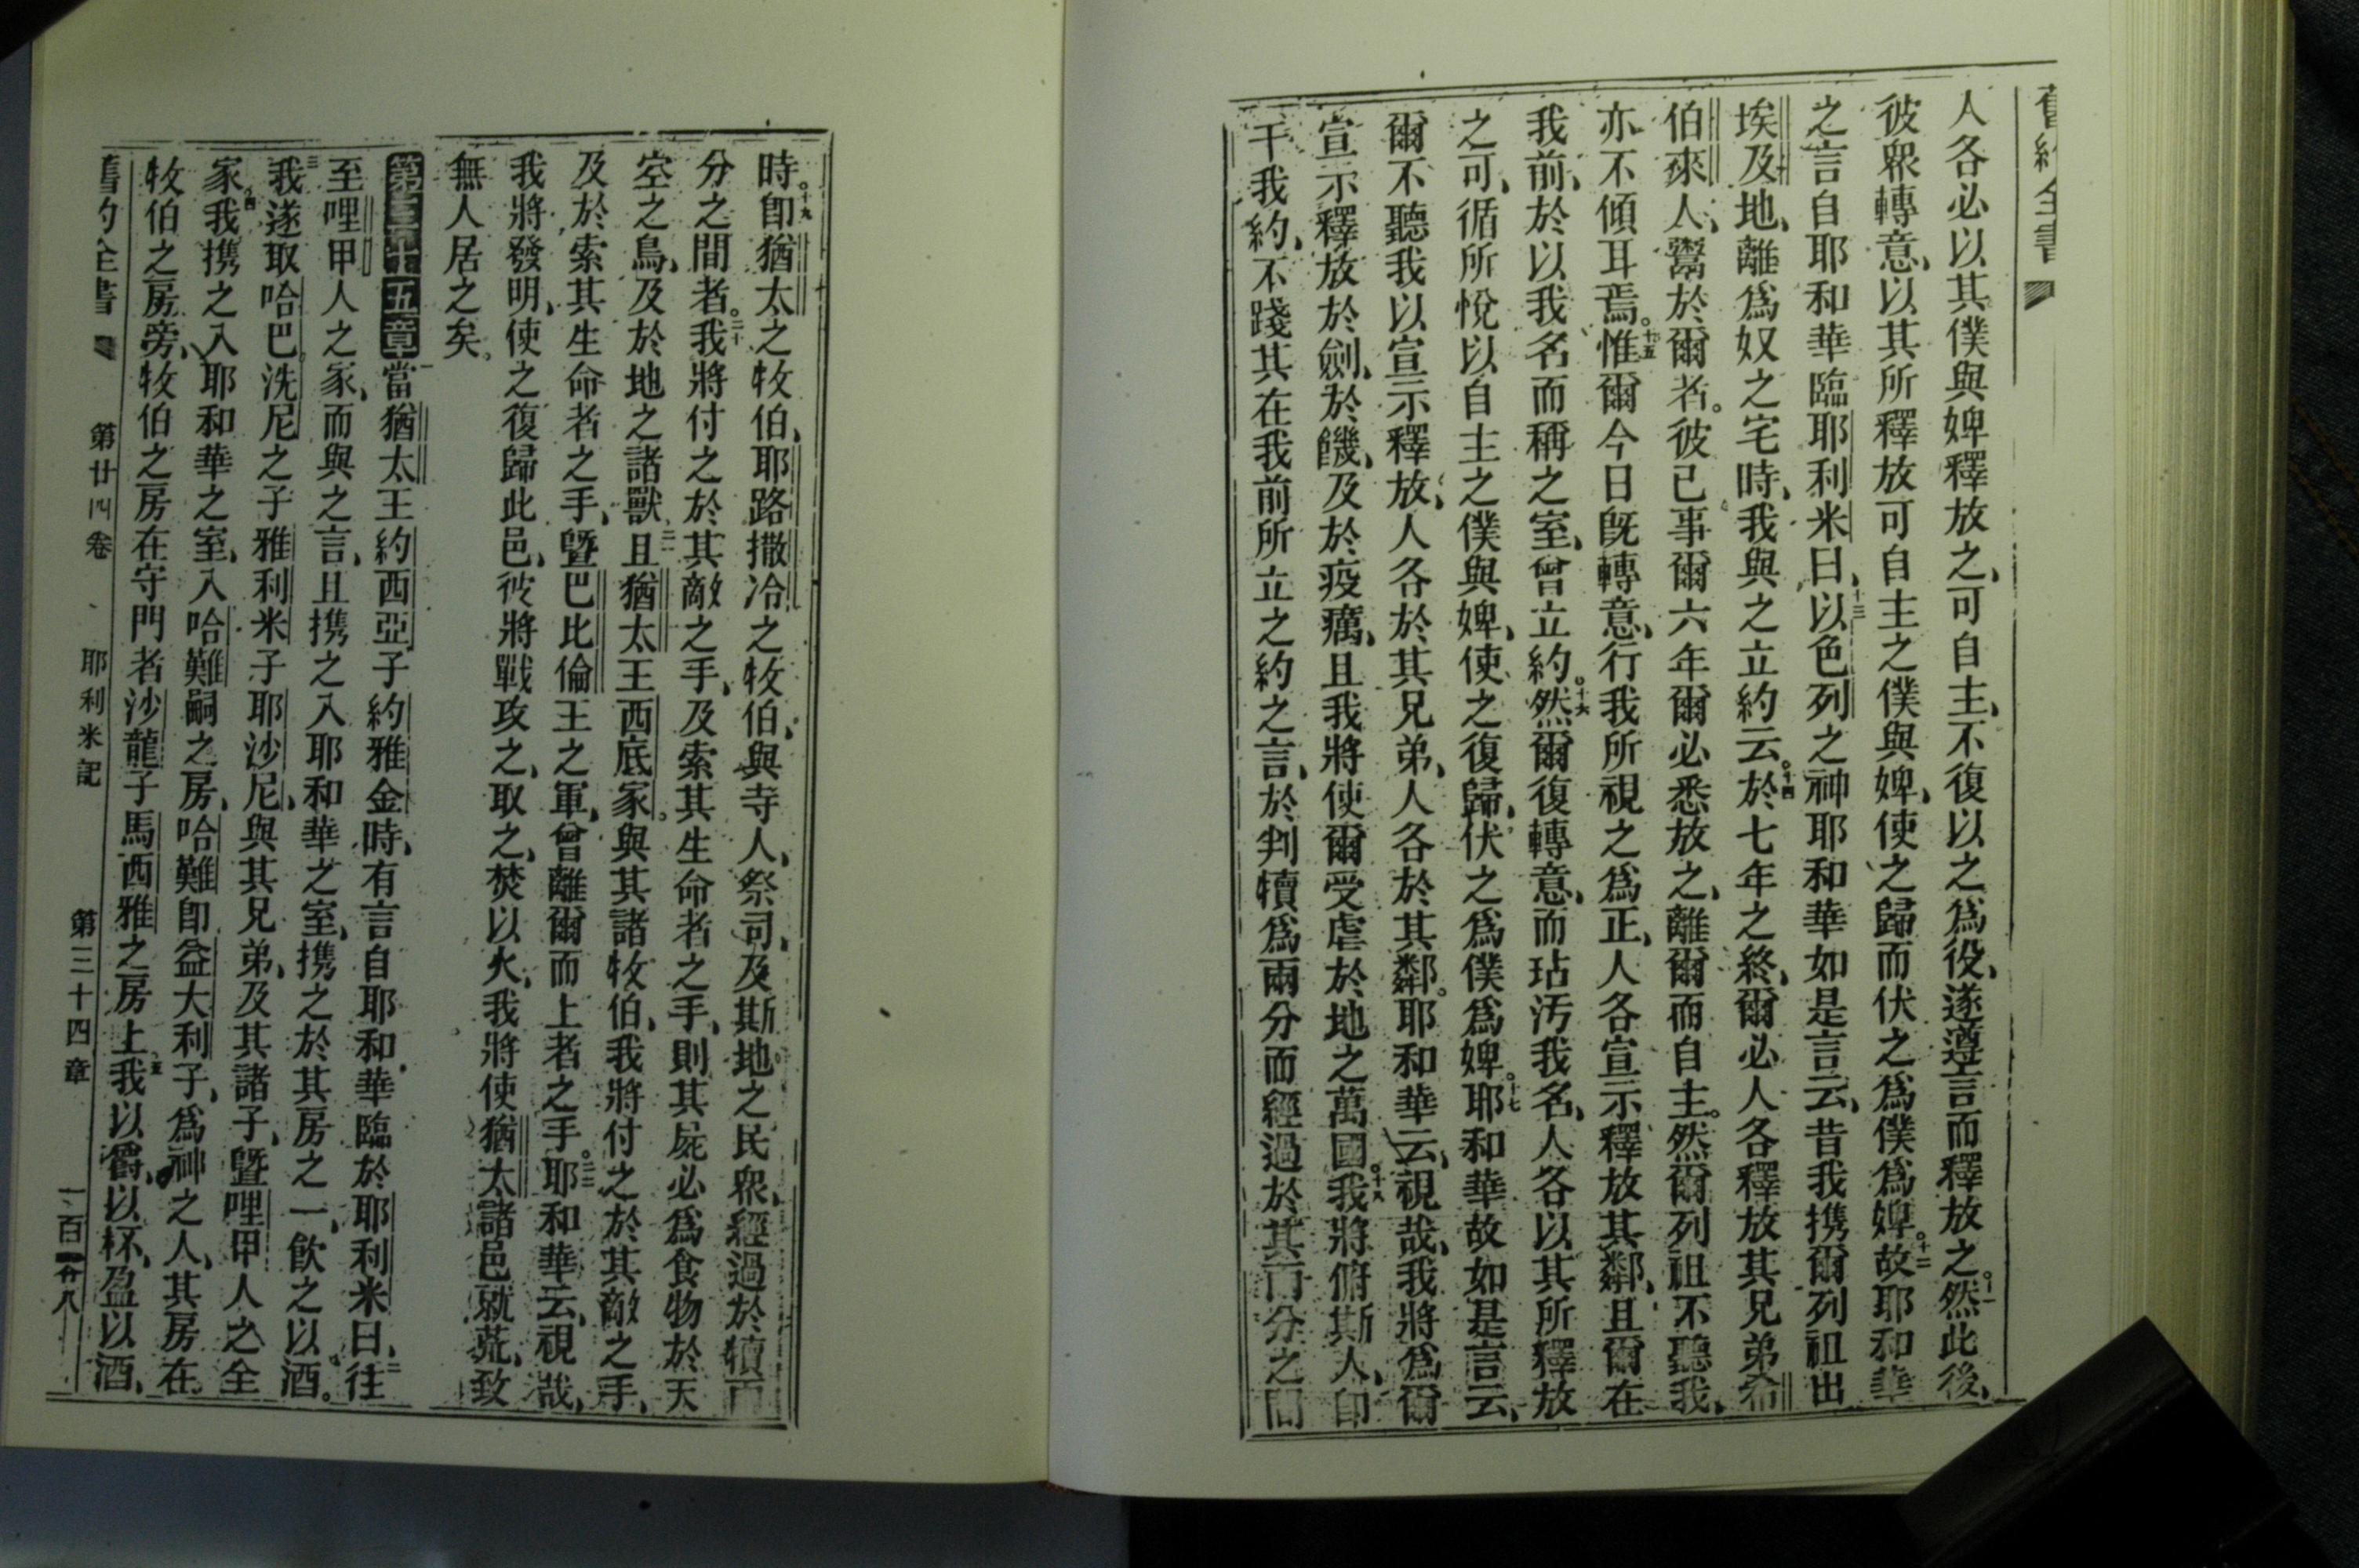 舊約全書
人各必以其僕與婢釋放之、可自主、不復以之爲役、遂遵言而釋放之。十一然此後、
彼衆轉意、以其所釋放可自主之僕與婢、使之歸而伏之爲僕爲婢。十二故耶和華
之言自耶和華臨耶利米曰、十三以色列之神耶和華如是言云、昔我攜爾列祖出
埃及地、離爲奴之宅時、我與之立約云。十四於七年之終、爾必人各釋放其兄弟希
伯來人、鬻於爾者。彼已事爾六年爾必悉放之、離爾而自主。然爾列祖不聽我、
亦不傾耳焉。十五惟爾今日旣轉意、行我所視之爲正、人各宣示釋放其鄰、且爾在
我前、於以我名而稱之室、曾立約。十六然爾復轉意、而玷汚我名、人各以其所釋放
之可、循所悅以自主之僕與婢、使之復歸、伏之爲僕爲婢。十七耶和華故如是言云、
爾不聽我以宣示釋放、人各於其兄弟、人各於其鄰。耶和華云、視哉、我將爲爾
宣示釋放於劍、於饑、及於疫癘、且我將使爾受虐於地之萬國。十八我將俯斯人、卽
干我約、不踐其在我前所立之約之言、於判犢爲兩分而經過於其兩分之間
時。十九卽猶太之牧伯、耶路撒冷之牧伯、與寺人、祭司、及斯地之民衆、經過於犢兩
分之間者。二十我將付之於其敵之手、及索其生命者之手、則其屍必爲食物於天
空之鳥、及於地之諸獸二一且猶太王西底家。與其諸牧伯、我將付之於其敵之手、
及於索其生命者之手、曁巴比倫王之軍、曾離爾而上者之手。二二耶和華云、視哉、
我將發明、使之復歸此邑、彼將戰攻之、取之、焚以火、我將使猶太諸邑就荒、致
無人居之矣。
第三十五章 一當猶太王約西亞子約雅金時、有言自耶和華臨於耶利米曰、二往
至哩甲人之家、而與之言、且攜之入耶和華之室、攜之於其房之一、飮之以酒。
三我遂取哈巴洗尼之子雅利米子耶沙尼、與其兄弟、及其諸子、曁哩甲人之全
家。四我攜之入耶和華之室、入哈難嗣之房、哈難卽益大利子、爲神之人、其房在
牧伯之房旁、牧伯之房在守門者沙龍子馬西雅之房上、五我以爵、以杯、盈以酒、
舊約全書 第廿四卷 耶利米記 第三十四章 一百廿八